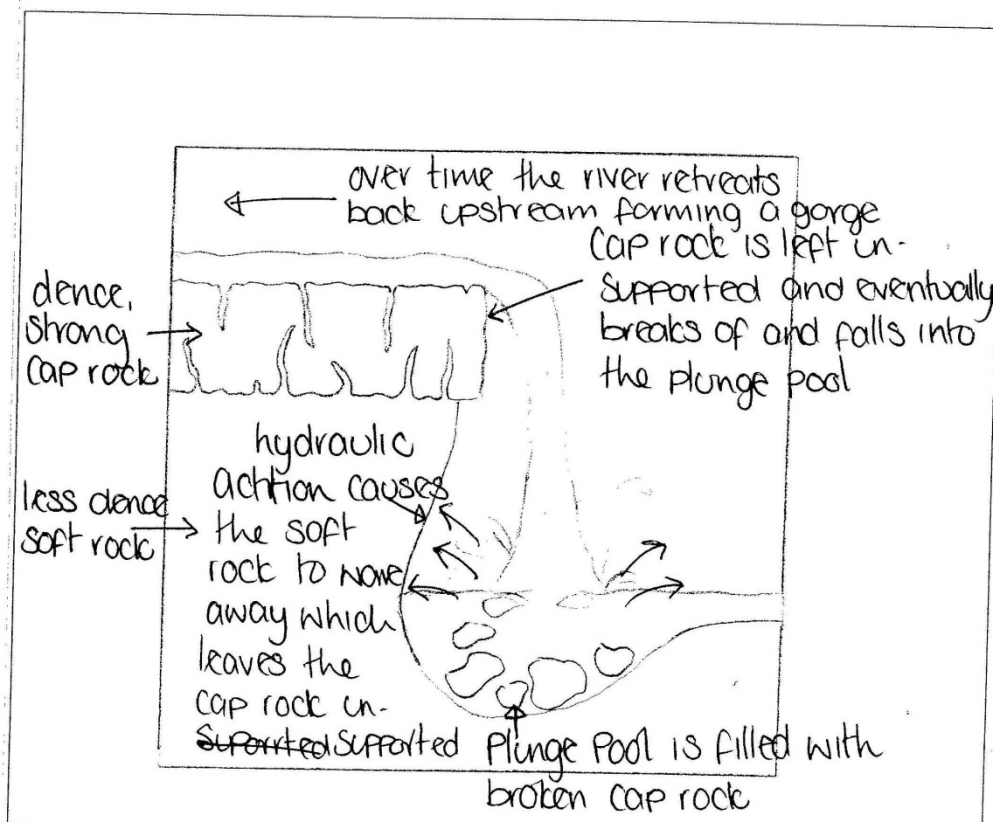 over time the river retreats
back upstream forming a gorge
cap rock is left un-
supported and eventually
breaks of and falls into
the plunge pool
dence,
strong
cap rock
hydraulic
achtion causes
the soft
rock to wone
away which
leaves the
cap rock un-
Suporrted supported
less dence
soft rock
Plunge Pool is filled with
broken cap rock